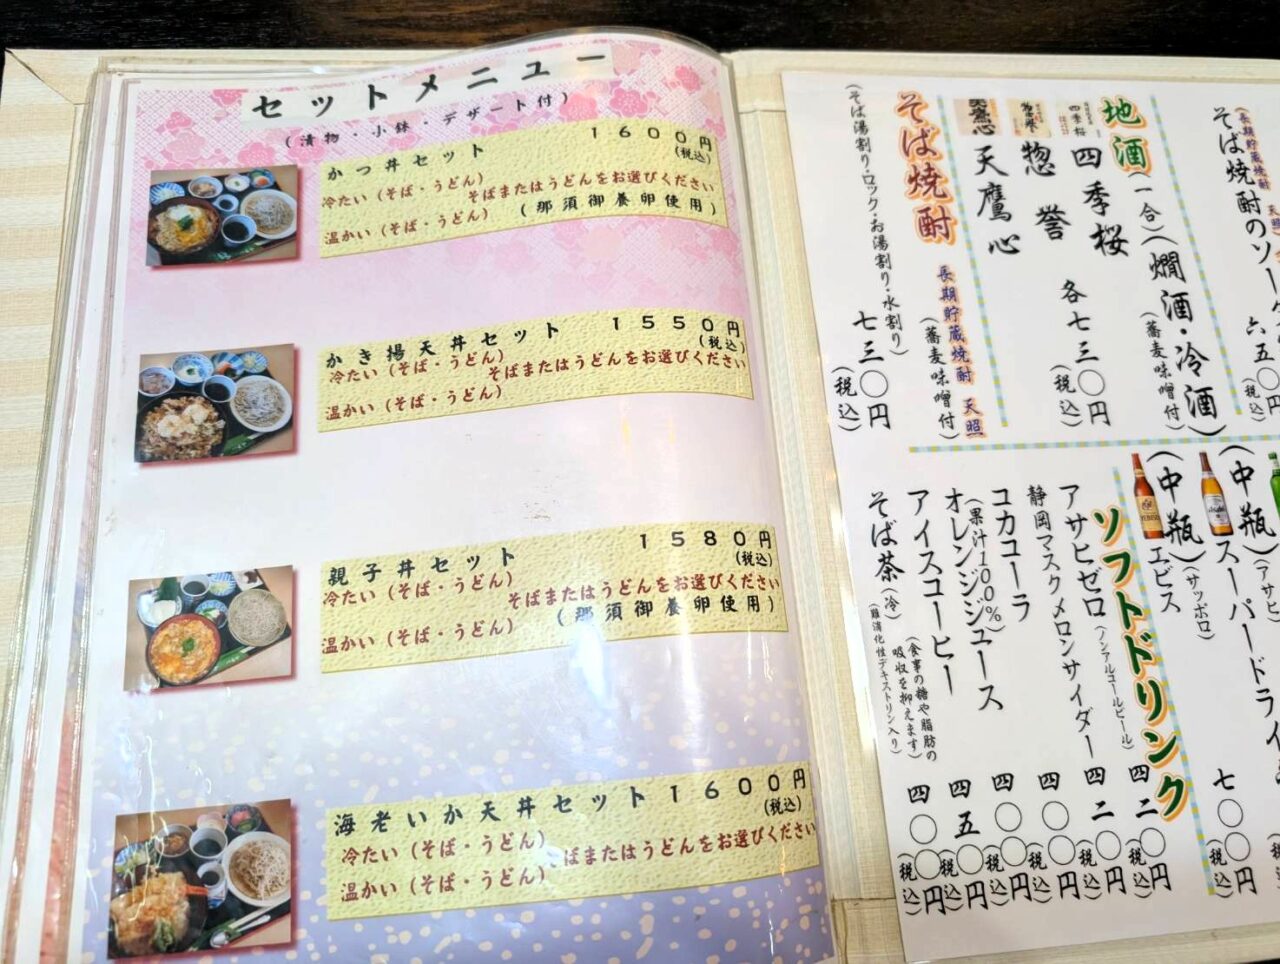 セットメニュー
(漬物・小鉢・デザート付)
かつ丼セット 1600円
(税込)
冷たい(そば・うどん)
そばまたはうどんをお選びください
温かい(そば・うどん)
(那須御養卵使用)
かき揚天丼セット 1550円
(税込)
冷たい(そば・うどん)
そばまたはうどんをお選びください
温かい(そば・うどん)
親子丼セット 1580円
(税込)
冷たい(そば・うどん)
そばまたはうどんをお選びください
温かい(そば・うどん)
(那須御養卵使用)
海老いか天丼セット 1600円
(税込)
冷たい(そば・うどん)
ばまたはうどんをお選びください
温かい(そば・うどん)
長期貯蔵焼酎 天照
そば焼酎のソー
六五〇
(税込)
地酒(一合)(燗酒・冷酒)
(蕎麦味噌付)
四季桜
惣誉
各七三〇円
(税込)
天鷹心
そば焼酎
長期貯蔵焼酎 天照
(蕎麦味噌付)
(そば湯割り・ロック・お湯割り・水割り)
七三〇円
(税込)
(中瓶)スーパードライ
(アサヒ)
七〇〇円
(税込)
(中瓶)エビス
(サッポロ)
ソフトドリンク
アサヒゼロ(ノンアルコールビール) 四二〇円
(税込)
静岡マスクメロンサイダー 四二〇円
(税込)
コカコーラ 四〇〇円
(税込)
オレンジジュース 四〇〇円
(果汁100%)
(税込)
アイスコーヒー 四五〇円
(税込)
そば茶(冷) 四〇〇円
(食事の糖や脂肪の
吸収を抑えます)
(難消化性デキストリン入り)
(税込)